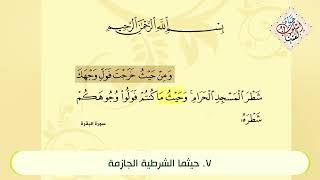 بِسْمِ اللَّهِ الرَّحْمَٰنِ الرَّحِيمِ
وَمِنْ حَيْثُ خَرَجْتَ فَوَلِّ وَجْهَكَ
شَطْرَ الْمَسْجِدِ الْحَرَامِ ۚ وَحَيْثُ مَا كُنتُمْ فَوَلُّوا وُجُوهَكُمْ
شَطْرَهُ
سورة البقرة
٧. حيثما الشرطية الجازمة